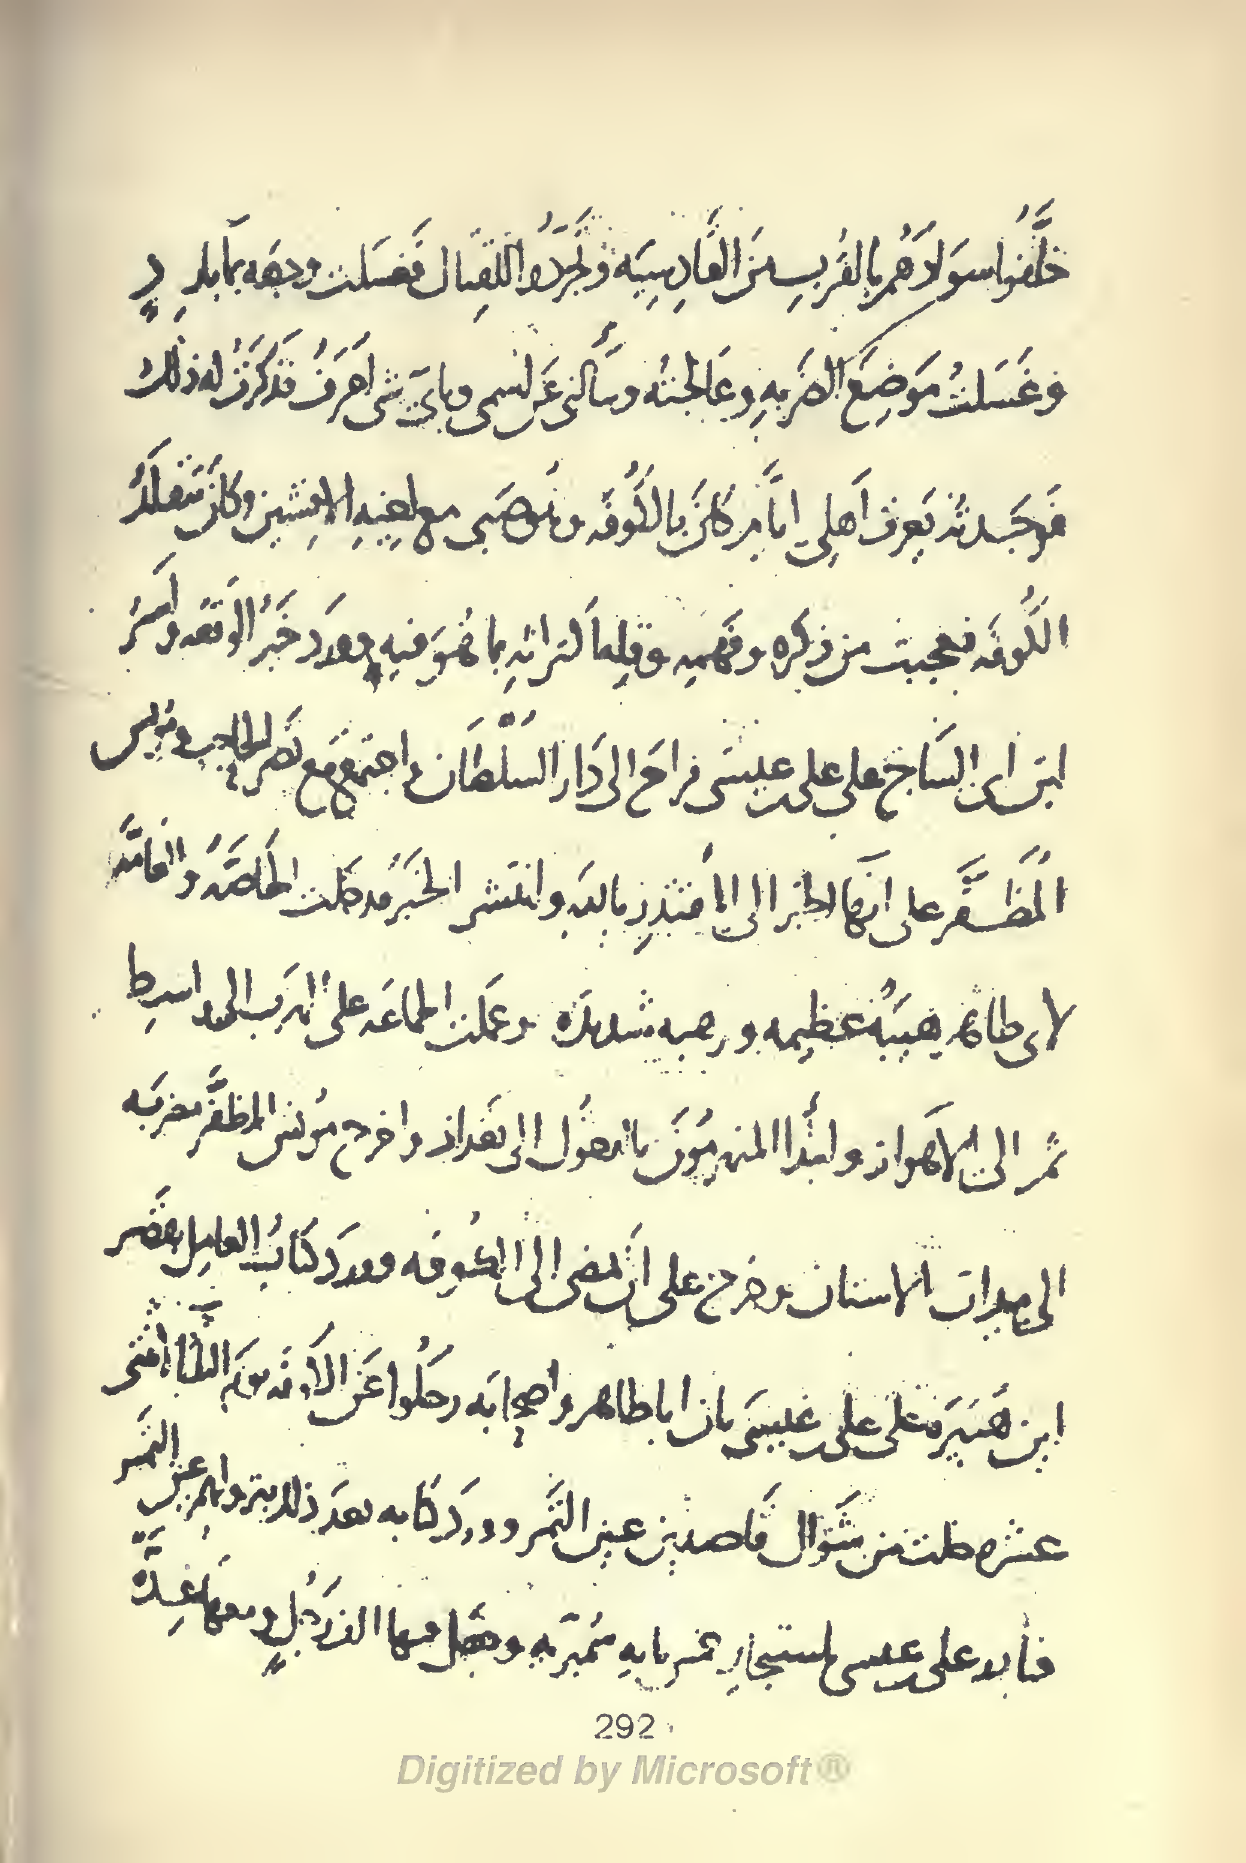 خلَّفُوا سَوَادَهُم بالقُربِ مِنَ القَادِسِيَه وتَجَرَّدُوا للقِتال فَغسَلت وجهَه بمآ باردٍ
وغَسَلتُ مَوضِعَ الضَربِه وعَالجتُه وسَأَلنى عَن اسمى وبايّ شى اعرَفُ فذكَرتُ له ذلك
فوَجَدتُه يَعرِف اَهلى ايّامَ كانَ بالكُوفَه مع اَخيهِ الافشين وكانَ تقلّدُ
الكُوفَه فعجبت من ذكره وفَهمِه وقله اكتراثهِ بما هُوَ فيهِ ووَرَد خَبَرُ الوَقعَه واَسرُ
ابنِ ابى السَّاج على على بن عيسَى فراحَ الى دَار السُّلطان واجتَمع مَع نَصر الحاجب ومُونس
المُظَفَّر على انهآ الخبر الى المُقتَدِر بالله وانتَشر الخَبَرُ فدخلت الخاصَّهُ والعامَّه
لابى طاهر هَيبَهٌ عظيمه ورهبه شديدَه وعَمِلَت الجماعَه على الهَرَب الى واسِط
ثم الى الاهواز وابتَدا المنهزمُونَ بالدخُول الى بغداذ واخرج مُونسُ المظفَّر مضربَه
الى ميدان الاسنان وخرج على اَن يمضى الى الكُوفه ووَرَد كتابُ العامِل بقصر
ابن هُبَيرَه على على بن عيسَى بان ابا طاهر واصحابَه رحَلُوا عَن الكوفَه يَوم الثلثا لاثنتى
عشره خلت من شَوّال قَاصدين عين التَمر ووَرَدَ كتابه بعدَ ذلك بنزولهم عين التَمر
فبادر على بن عيسى باستيجارِ خمس مايهِ سُمَيريّه وجَعل فيها الف رَجُلٍ ومعها عِدَّه
292
Digitized by Microsoft®